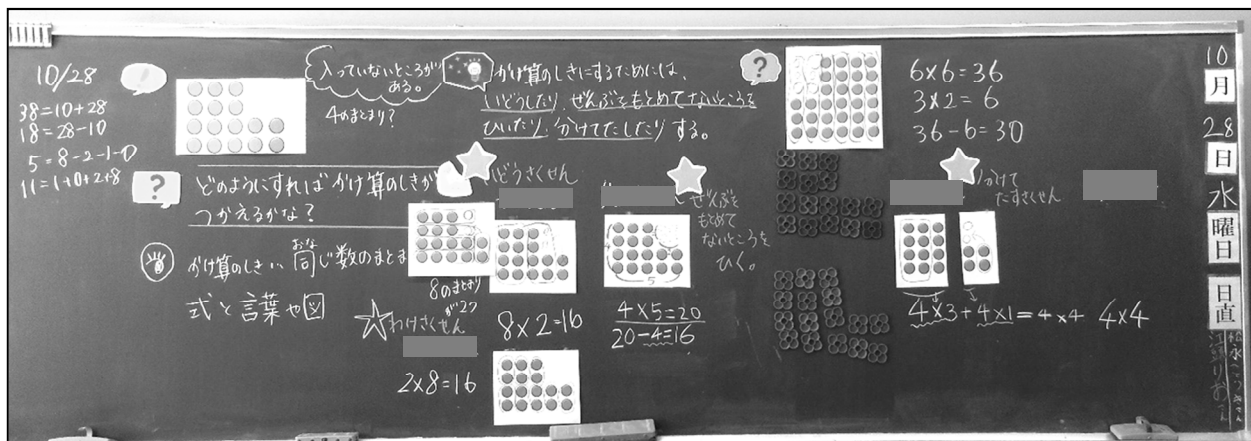 10/28
38=10+28
18=28-10
5=8-2-1-0
11=1+0+2+8
入っていないところが
ある。
4のまとまり?
かけ算のしきにするためには、
いどうしたり、ぜんぶをもとめてないところを
ひいたり、分けてたしたりする。
?
どのようにすれば かけ算のしきが
つかえるかな?
かけ算のしき…同じ数のまとま
おな
式と言葉や図
いどうさくせん
8のまとまり
が2つ
8×2=16
わけさくせん
2×8=16
ぜんぶを
もとめて
ないところを
ひく。
5
4×5=20
20-4=16
?
6×6=36
3×2=6
36-6=30
分けて
たすさくせん
4×3+4×1=4×4
4×4
10
月
28
日
水
曜日
日直